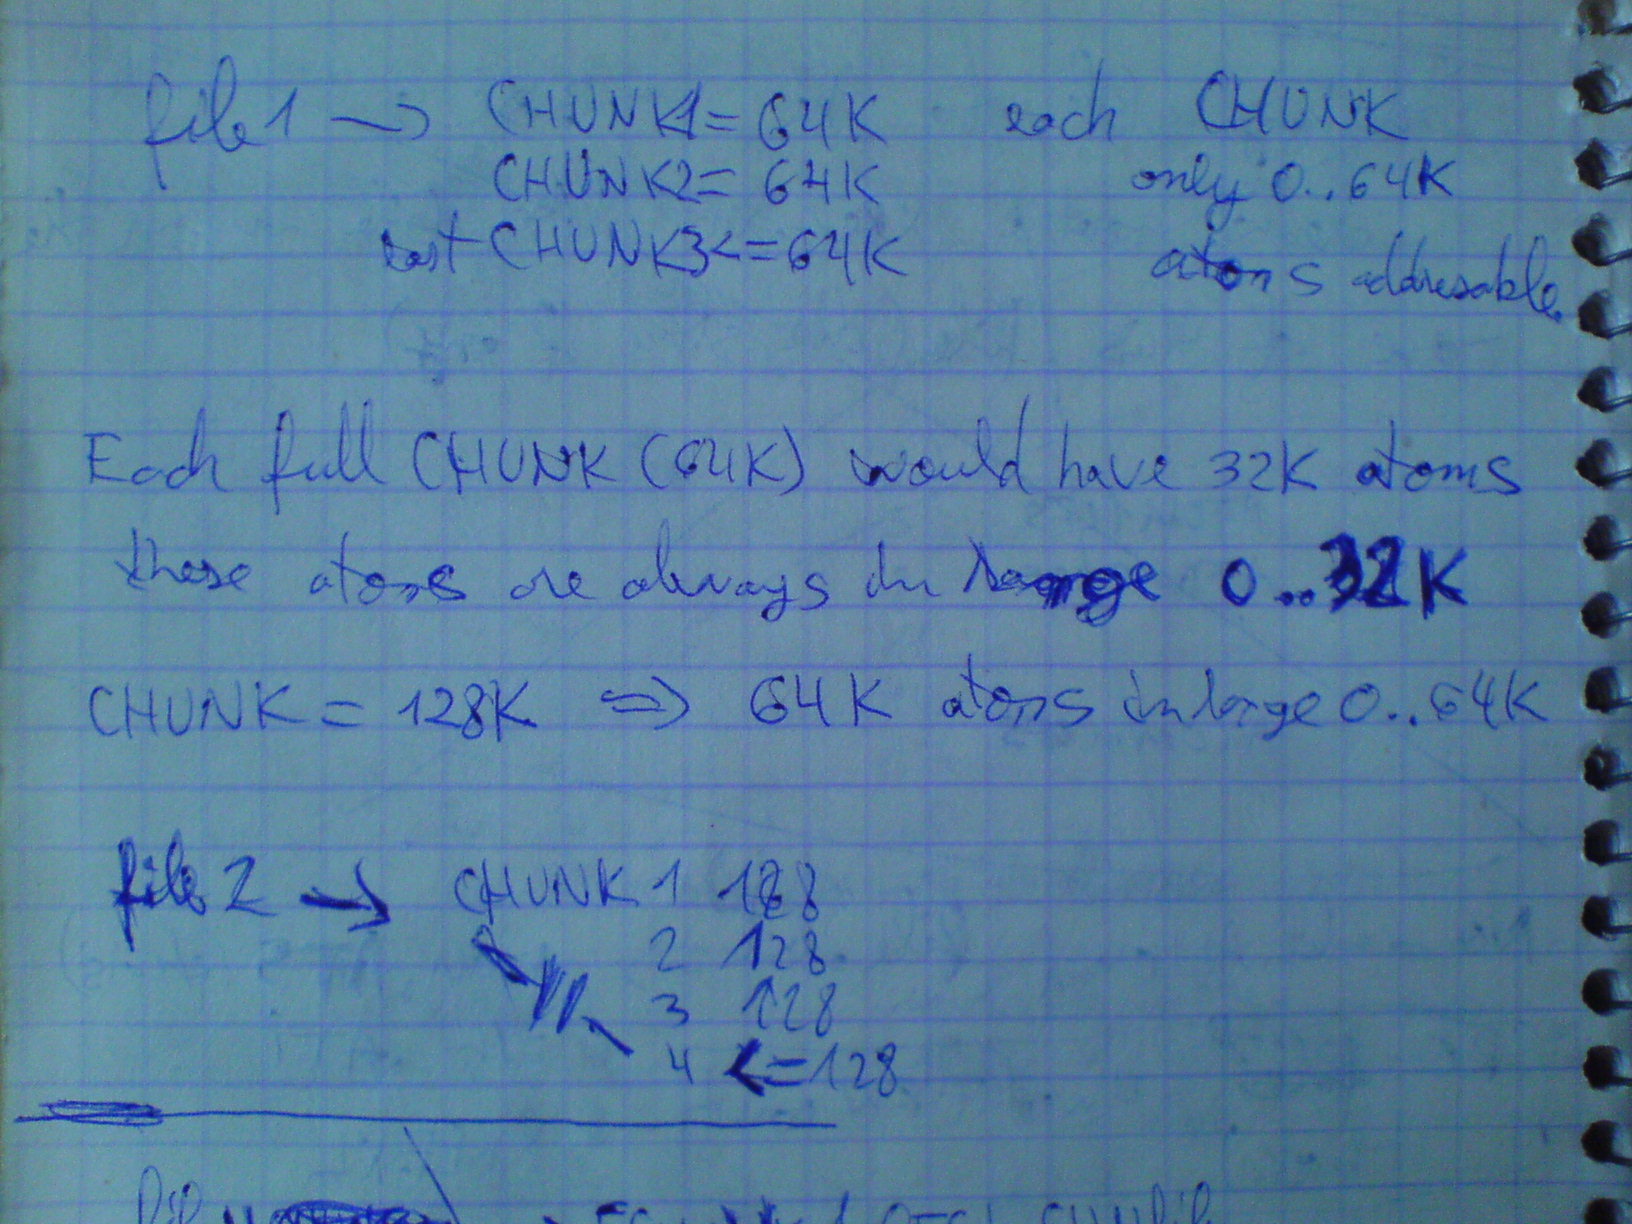 file 1 → CHUNK1 = 64K each CHUNK
CHUNK2 = 64K only 0..64K
last CHUNK3 <= 64K atoms addresable
Each full CHUNK (64K) would have 32K atoms
these atoms are always in range 0..32K
CHUNK = 128K => 64K atoms in range 0..64K
file 2 → CHUNK 1 128
2 128
3 128
4 <= 128